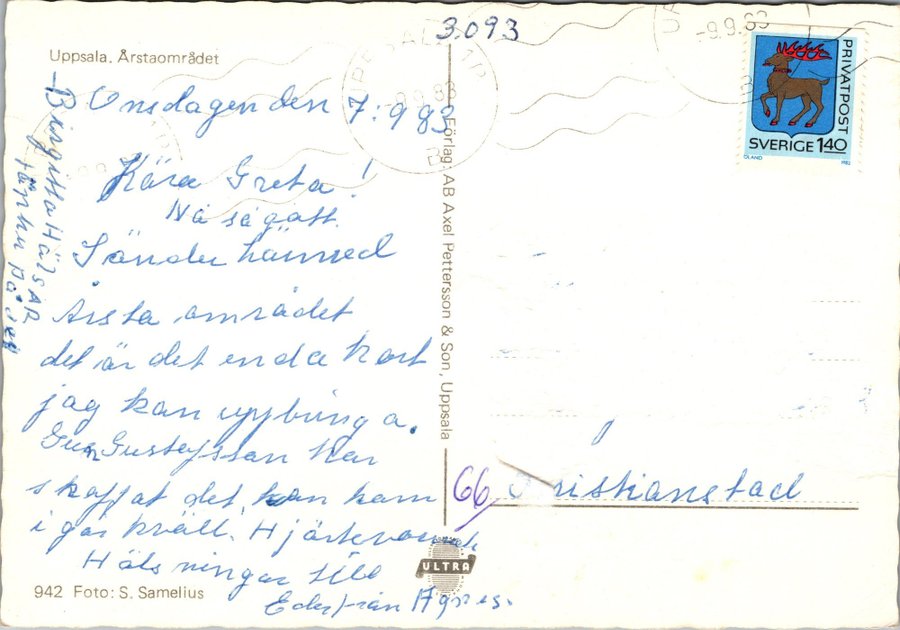 3.093
Uppsala. Årstaområdet
Onsdagen den 7:983
Kära Greta!
Nå så gott.
Sänder härmed
Årsta området
det är det enda kort
jag kan uppbringa.
Gun Gustafsson har
skaffat det, han kom
i går kväll. Hjärtevarma
Hälsningar till
Eder från Agnes.
Birgitta HälsAR
tänker på dej
942 Foto: S. Samelius
Förlag: AB Axel Pettersson & Son, Uppsala
ULTRA
UPPSALA
9.9.83
-9.9.83
PRIVATPOST
SVERIGE 140
ÖLAND 1982
66
Kristianstad